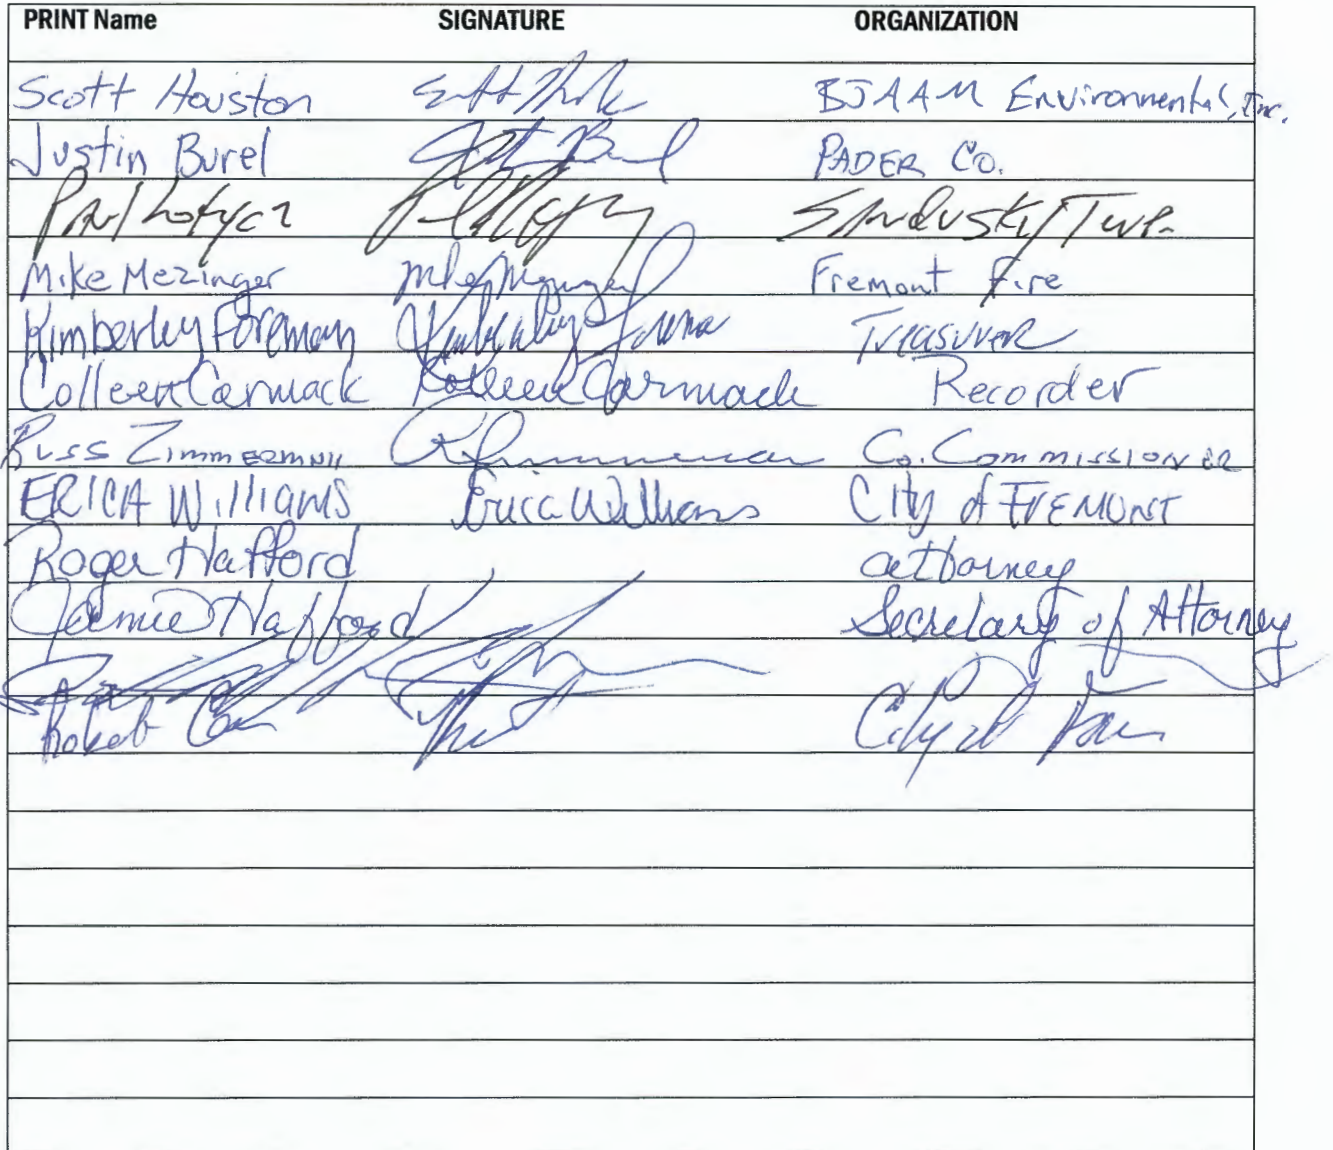 PRINT Name SIGNATURE ORGANIZATION
Scott Houston BJAAM Environmental, Inc.
Justin Burel Justin Burel PADER Co.
Paul Lotycz Sandusky Twp.
Mike Mezinger Fremont Fire
Kimberley Foreman Kimberley Foreman Treasurer
Colleen Carmack Colleen Carmack Recorder
Russ Zimmerman Co. Commissioner
ERICA Williams Erica Williams City of FREMONT
Roger Hafford attorney
Jamie Hafford Secretary of Attorney